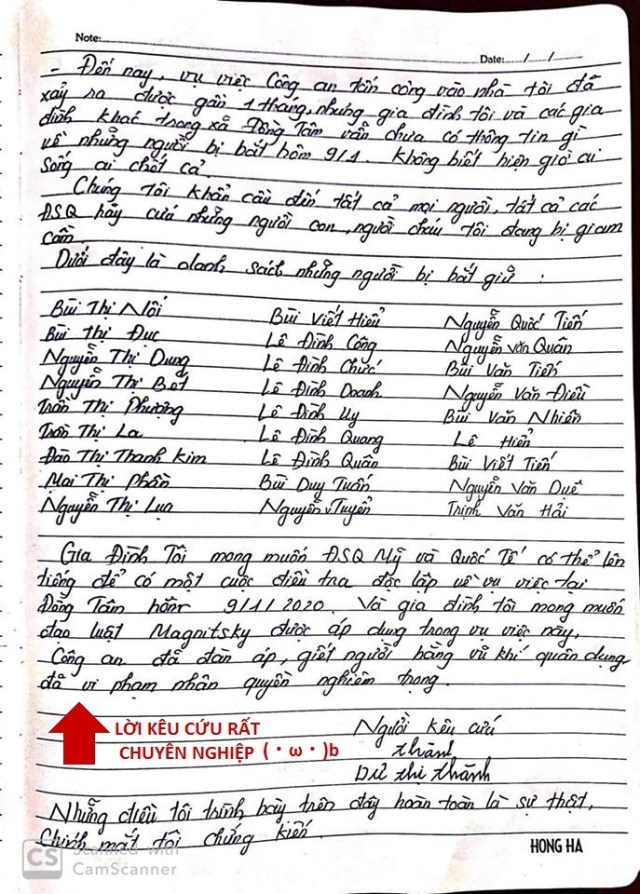 Note:
Date: / /
- Đến nay, vụ việc Công an tấn công vào nhà tôi đã
xảy ra được gần 1 tháng, nhưng gia đình tôi và các gia
đình khác trong xã Đồng Tâm vẫn chưa có thông tin gì
về những người bị bắt hôm 9/1. Không biết hiện giờ ai
sống ai chết cả.
Chúng tôi khẩn cầu đến tất cả mọi người, tất cả các
ĐSQ hãy cứu những người con, người cháu tôi đang bị giam
cầm.
Dưới đây là danh sách những người bị bắt giữ :
Bùi Thị Nối Bùi Viết Hiểu Nguyễn Quốc Tiến
Bùi Thị Đục Lê Đình Công Nguyễn Văn Quân
Nguyễn Thị Dung Lê Đình Chức Bùi Văn Tiến
Nguyễn Thị Bét Lê Đình Doanh Nguyễn Văn Điều
Trần Thị Phượng Lê Đình Uy Bùi Văn Nhiên
Trần Thị La Lê Đình Quang Lê Hiển
Đào Thị Thanh Kim Lê Đình Quân Bùi Viết Tiến
Mai Thị Phần Bùi Duy Tuấn Nguyễn Văn Duệ
Nguyễn Thị Lụa Nguyễn V Tuyển Trịnh Văn Hải
Gia Đình Tôi mong muốn ĐSQ Mỹ và Quốc Tế có thể lên
tiếng để có một cuộc điều tra độc lập về vụ việc tại
Đồng Tâm hôm 9/1/2020. Và gia đình tôi mong muốn
đạo luật Magnitsky được áp dụng trong vụ việc này,
Công an đã đàn áp, giết người bằng vũ khí quân dụng
đã vi phạm nhân quyền nghiêm trọng.
LỜI KÊU CỨU RẤT
CHUYÊN NGHIỆP (・ω・)b
Người kêu cứu
Thành
Dư Thị Thành
Những điều tôi trình bày trên đây hoàn toàn là sự thật,
Chính mắt tôi chứng kiến.
HONG HA
CS Scanned with
CamScanner